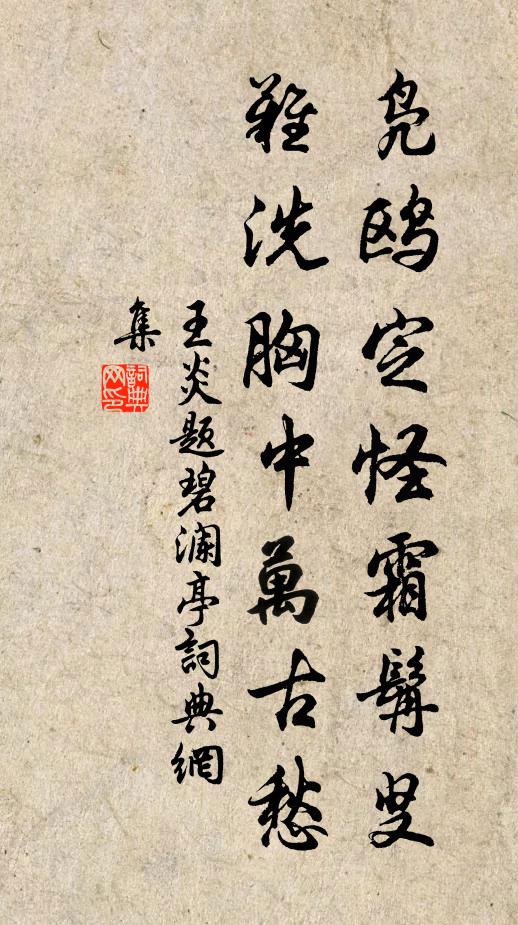 鳧鷗定怪霜髯叟
難洗胸中萬古愁
王炎題碧瀾亭詞典網
集
詞典
网印